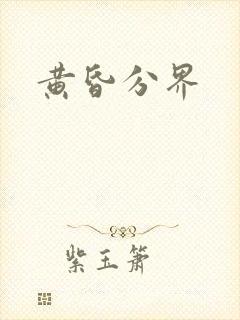 黄昏分界
紫玉箫